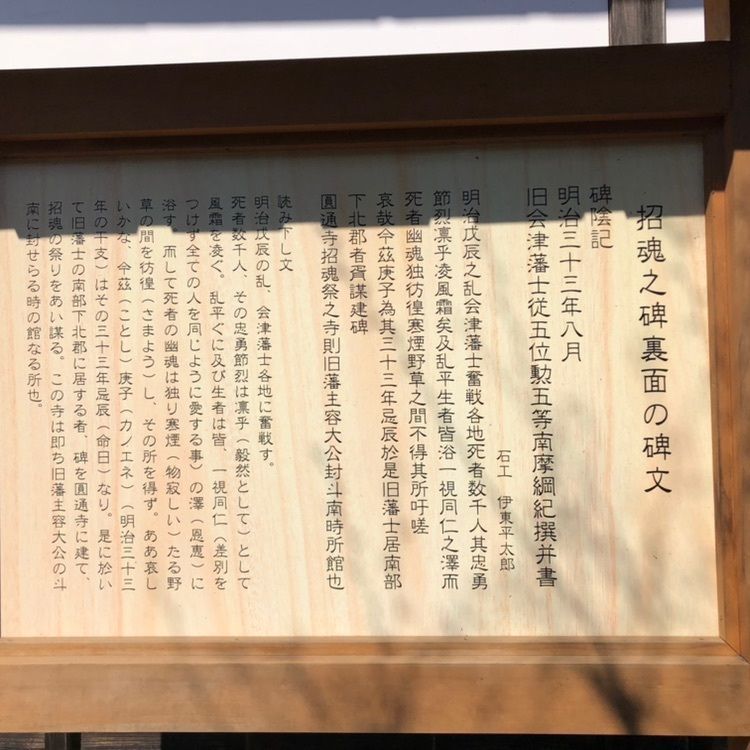 招魂之碑裏面の碑文
碑陰記
明治三十三年八月
旧会津藩士従五位勲五等南摩綱紀撰并書
石工　伊東平太郎
明治戊辰之乱会津藩士奮戦各地死者数千人其忠勇
節烈凛乎凌風霜矣及乱平生者皆浴一視同仁之澤而
死者幽魂独彷徨寒煙野草之間不得其所吁嗟
哀哉今茲庚子為其三十三年忌辰於是旧藩士居南部
下北郡者胥謀建碑
圓通寺招魂祭之寺則旧藩主容大公封斗南時所館也
読み下し文
明治戊辰の乱、会津藩士各地に奮戦す。
死者数千人、その忠勇節烈は凛乎（毅然として）として
風霜を凌ぐ。乱平ぐに及び生者は皆、一視同仁（差別を
つけず全ての人を同じように愛する事）の澤（恩恵）に
浴す。而して死者の幽魂は独り寒煙（物寂しい）たる野
草の間を彷徨（さまよう）し、その所を得ず。ああ哀し
いかな、今茲（ことし）庚子（カノエネ）（明治三十三
年の干支）はその三十三年忌辰（命日）なり。是に於い
て旧藩士の南部下北郡に居する者、碑を圓通寺に建て、
招魂の祭りをあい謀る。この寺は即ち旧藩主容大公の斗
南に封せらる時の館なる所也。